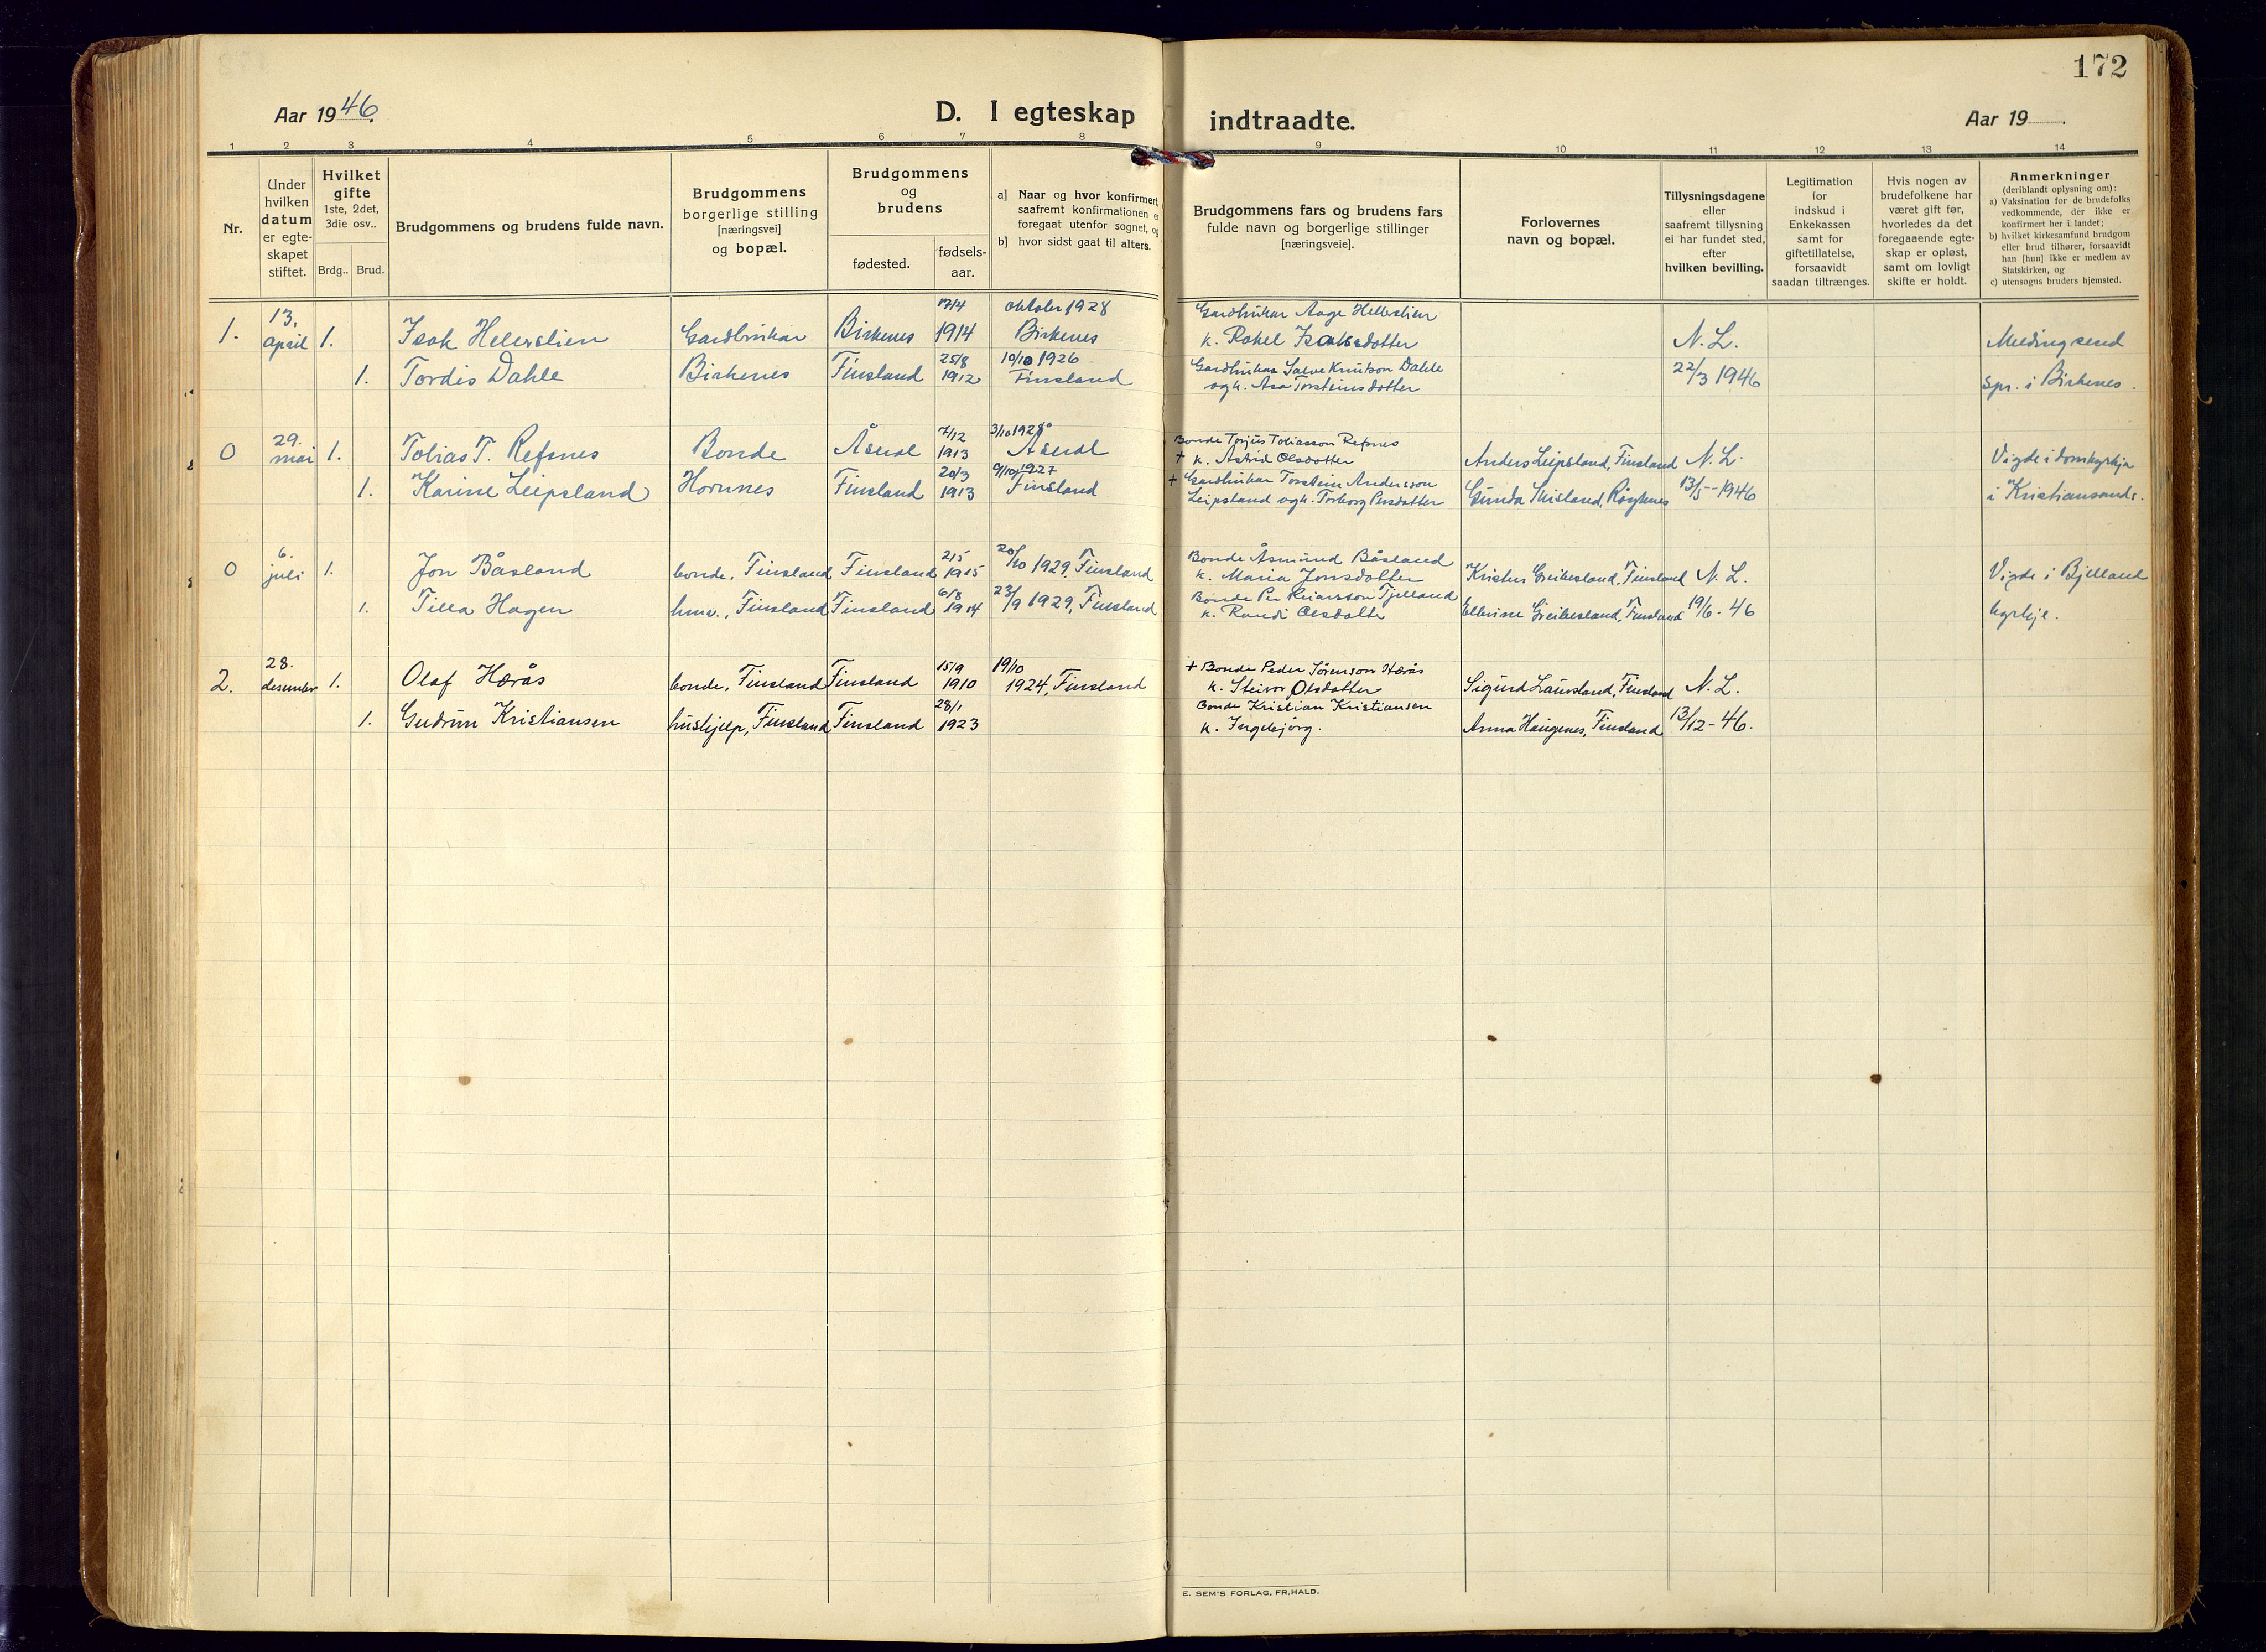 172
Aar 1946.
D. I egteskap indtraadte.
Aar 19
1 2 3 4 5 6 7 8 9 10 11 12 13 14
Nr.
Under hvilken datum er egteskapet stiftet.
Hvilket gifte 1ste, 2det, 3die osv..
Brdg.. Brud.
Brudgommens og brudens fulde navn.
Brudgommens borgerlige stilling [næringsvei] og bopæl.
Brudgommens og brudens
fødested.
fødsels-aar.
a] Naar og hvor konfirmert, saafremt konfirmationen er foregaat utenfor sognet, og
b] hvor sidst gaat til alters.
Brudgommens fars og brudens fars fulde navn og borgerlige stillinger [næringsveie].
Forlovernes navn og bopæl.
Tillysningsdagene eller saafremt tillysning ei har fundet sted, efter hvilken bevilling.
Legitimation for indskud i Enkekassen samt for giftetillatelse, forsaavidt saadan tiltrænges.
Hvis nogen av brudefolkene har været gift før, hvorledes da det foregaaende egteskap er opløst, samt om lovligt skifte er holdt.
Anmerkninger (deriblandt oplysning om):
a) Vaksination for de brudefolks vedkommende, der ikke er konfirmert her i landet;
b) hvilket kirkesamfund brudgom eller brud tilhører, forsaavidt han [hun] ikke er medlem av Statskirken, og
c) utensogns bruders hjemsted.
1. 13. april 1. Isak Hellerslien Gardbrukar Birkenes 17/4 1914 oktober 1928 Birkenes Gardbrukar Aage Hellerslien k. Rakel Isaksdotter N. L. Melding send
1. Tordis Dahle Birkenes Finsland 25/8 1912 10/10 1926 Finsland Gardbrukar Salve Knutson Dahle og k. Asa Torsteinsdotter 22/3 1946 spr. i Birkenes.
0 29. mai 1. Tobias T. Refsnes Bonde Åseral 7/12 1913 3/10 1928 Åseral Bonde Torjus Tobiasson Refsnes + k. Astrid Olsdotter Anders Leipsland, Finsland N. L. Vigde i domkyrkja
1. Karine Leipsland Hornnes Finsland 20/3 1913 9/10 1927 Finsland + Gardbrukar Torstein Andersson Leipsland og k. Torborg Persdotter Gunda 13/5-1946 i Kristiansand.
0 6. juli 1. Jon Båsland bonde, Finsland Finsland 2/5 1915 20/10 1929, Finsland Bonde Åsmund Båsland k. Maria Jonsdotter Greibesland, Finsland N. L. Vigde i Bjelland
1. Tilla Hagen hmv., Finsland Finsland 6/8 1914 23/9 1929, Finsland Bonde Per Tjelland k. Randi Olsdotter Ellerine Greibesland, Finsland 19/6-46 kyrkje.
2. 28. desember 1. Olaf Hærås bonde, Finsland Finsland 15/9 1910 19/10 1924, Finsland + Bonde Peder Sørenson Hærås k. Steivor Olsdotter Sigurd Lauvsland, Finsland N. L.
1. Gudrun Kristiansen hushjelp, Finsland Finsland 28/1 1923 Bonde Kristian Kristiansen k. Ingebjørg. Anna Haugenes, Finsland 13/12-46.
E. SEM'S FORLAG, FR.HALD.